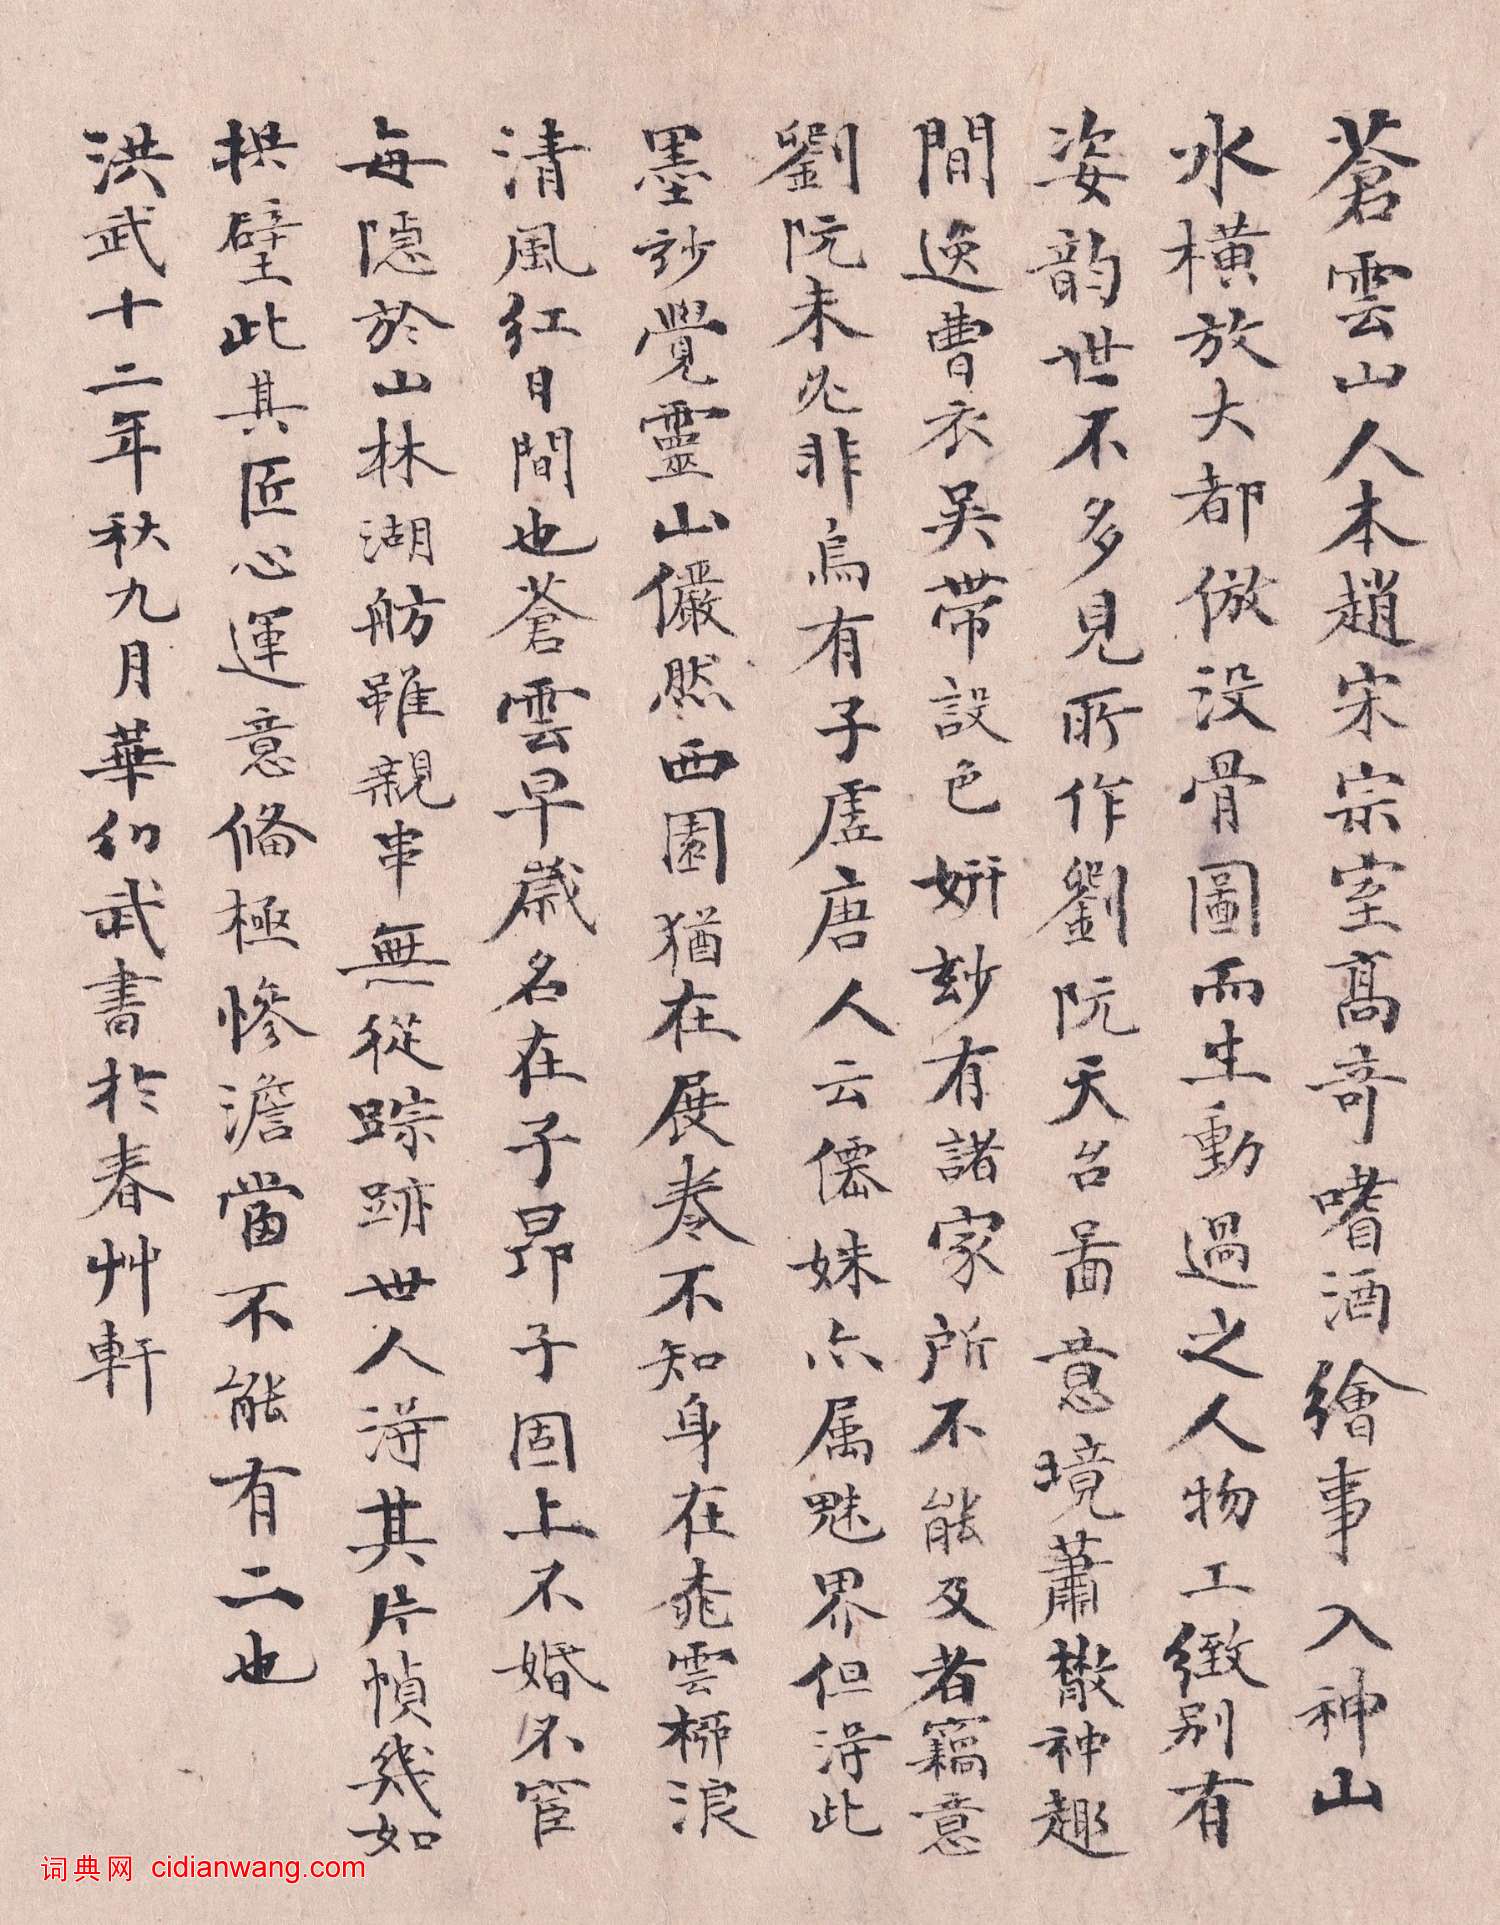 蒼雲山人本趙宋宗室髙奇嗜酒繪事入神山
水橫放大都倣没骨圖而生動過之人物工緻别有
姿韵世不多見所作劉阮天台啚意境蕭散神趣
閒逸曹衣吴帶設色妍玅有諸家所不能及者竊意
劉阮未必非烏有子虛唐人云僊姝亦属魅界但淂此
墨玅覺靈山儼然西園猶在展卷不知身在桃雲栁浪
清風紅日間也蒼雲早歲名在子昂子固上不婚不宦
每隱於山林湖舫雖親串無從踪跡世人淂其片幀幾如
拱璧此其匠心運意俻極慘澹當不能有二也
洪武十二年秋九月華幻武書於春艸軒
词典网 cidianwang.com